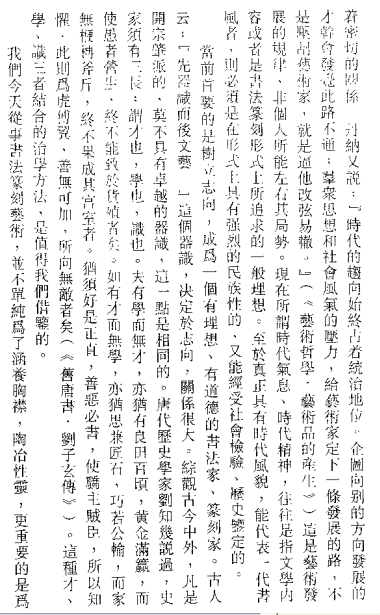 着密切的關係。丹納又說：『時代的趨向始終占着統治地位。企圖向别的方向發展的
才幹會發覺此路不通；羣衆思想和社會風氣的壓力，給藝術家定下一條發展的路，不
是壓制藝術家，就是逼他改弦易轍。』（《藝術哲學·藝術品的産生》）這是藝術發
展的規律，非個人所能左右其局勢。現在所謂時代氣息、時代精神，往往是指文學内
容或者是書法篆刻形式上所追求的一般理想。至於真正具有時代風貌，能代表一代書
風者，則必須是在形式上具有强烈的民族性的，又能經受社會檢驗、歷史鑒定的。
當前首要的是樹立志向，成爲一個有理想、有道德的書法家、篆刻家。古人
云：『先器識而後文藝。』這個器識，決定於志向，關係很大。綜觀古今中外，凡是
開宗肇派的，莫不具有卓越的器識，這一點是相同的。唐代歷史學家劉知幾説過，史
家須有三長：謂才也，學也，識也。夫有學而無才，亦猶有良田百頃，黄金滿籝，而
使愚者營生，終不能致於貨殖者矣。如有才而無學，亦猶思兼匠石，巧若公輸，而家
無楩柟斧斤，終不果成其宫室者。猶須好是正直，善惡必書，使驕主賊臣，所以知
懼，此則爲虎傅翼，善無可加，所向無敵者矣（《舊唐書·劉子玄傳》）。這種才、
學、識三者結合的治學方法，是值得我們借鑒的。
我們今天從事書法篆刻藝術，並不單純爲了涵養胸襟，陶冶性靈，更重要的是爲